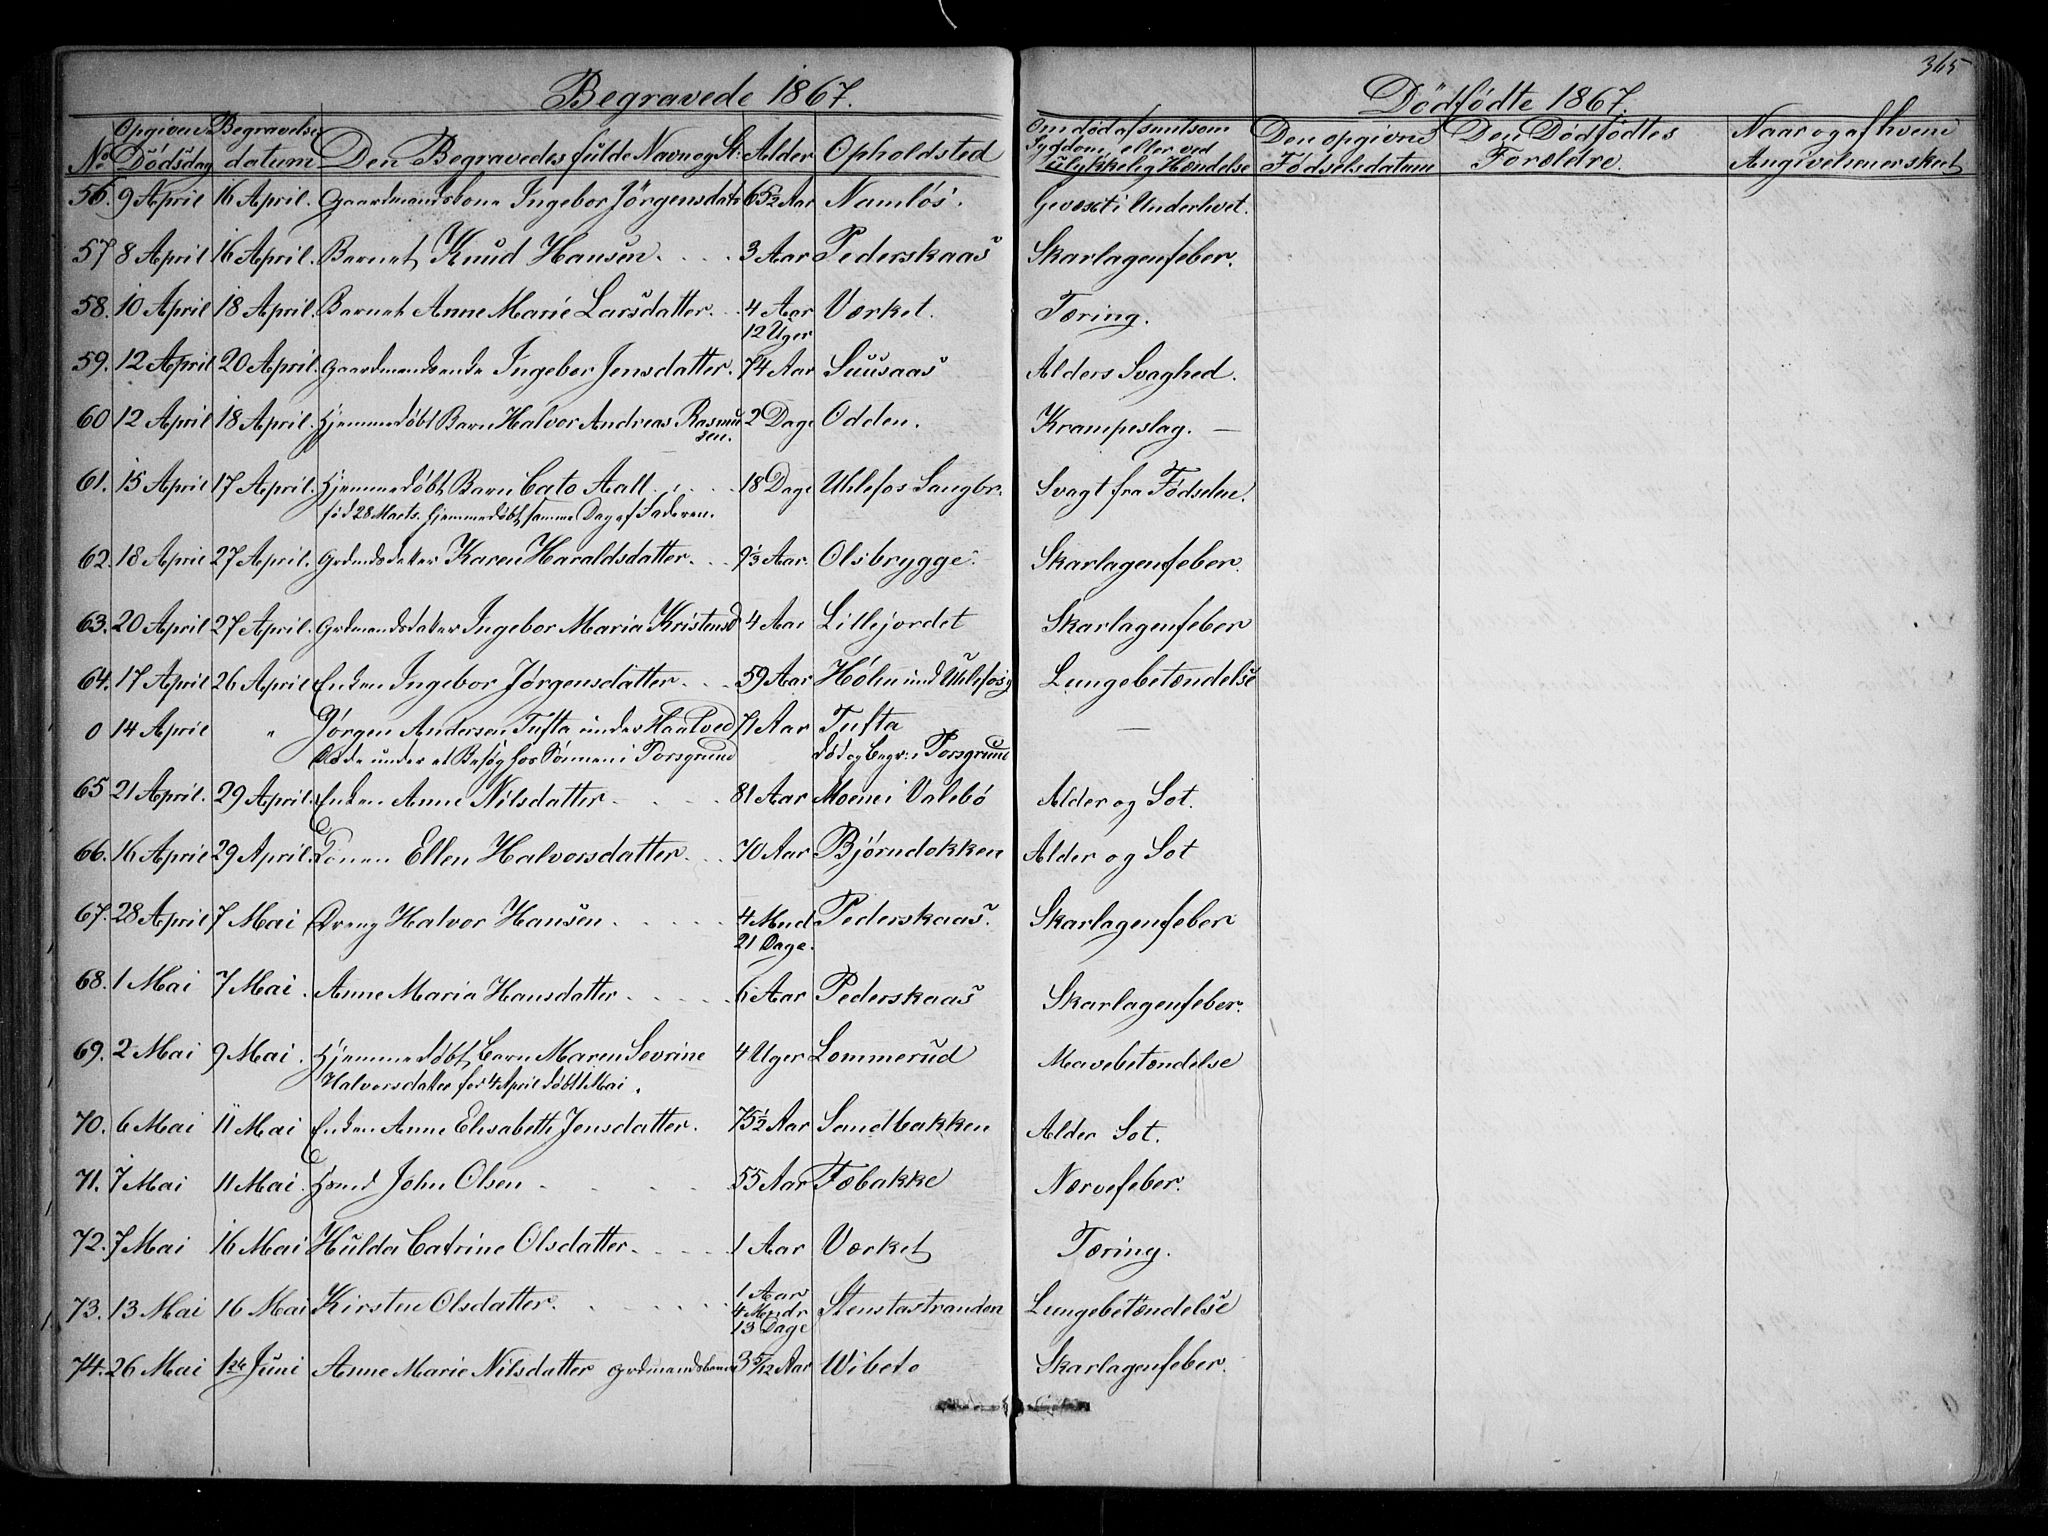 365
Begravede 1867.
Dödfødte 1867.
No Opgiven Dödsdag Begravelses datum Den Begravedes fulde Navn og St: Alder Opholdsted Om død af smitsom Sygdom, eller ved ulykkelig Hændelse Den opgivne Fødselsdatum Den Dödfödtes Forældre. Naar og af hvem Angivelsen er skeet
56. 9 April 16 April. Gaardmandskone Ingebor Jörgensdatr 65½ Aar Namlös. Gevæxt i Underlivet.
57 8 April 16 April. Barnet Knud Hansen. 3 Aar Pederskaas Skarlagenfeber.
58. 10 April 18 April. Barnet Anne Marie Larsdatter. 4 Aar Værket. Tæring.
12 Uger
59. 12 April 20 April. Gaardmandsenke Ingebor Jensdatter. 74 Aar Suusaas Alders Svaghed.
60 12 April 18 April. Hjemmedøbt Barn Halvor Andreas Rasmu 2 Dage Odden. Krampeslag. —
sen.
61. 15 April 17 April. Hjemmedøbt Barn Cato Aall. 18 Dage Ulefos Saugbr. Svagt fra Födselen.
föd 28 Marts. hjemmedøbt samme Dag af Faderen.
62. 18 April 27 April. Grdmdsdatter Karen Haraldsdatter. 9⅓ Aar. Olsbrygge. Skarlagenfeber.
63. 20 April 27 April. Grdmandsdatter Ingebor Maria Kristensd 4 Aar Lillejordet Skarlagenfeber
64. 17 April 26 April Enken Ingebor Jørgensdatter. 59 Aar Holm und Ulefos Lungebetændelse
0 14 April " Jørgen Andersen Tufta under Haatved 71 Aar Tufta —
Døde under et Besøg hos Sönnen i Porsgrund død og begr. i Porsgrund
65 21 April. 29 April. Enken Anne Nilsdatter 81 Aar Moene i Valebö Alder og Sot.
66. 16 April 29 April. Konen Ellen Halvorsdatter. 70 Aar Bjørndokken Alder og Sot
67. 28 April 7 Mai Dreng Halvor Hansen. 4 Mnd Pederskaas. Skarlagenfeber
21 Dage.
68. 1 Mai 7 Mai. Anne Maria Hansdatter 6 Aar Pederskaas Skarlagenfeber.
69. 2 Mai 9 Mai. Hjemmedøbt Barn Maren Sevrine 4 Uger Lommerud Mavebetændelse
Halvorsdatter før 4 April døbt 1 Mai.
70. 6 Mai 11 Mai Enken Anne Elisabeth Jensdatter. 75½ Aar Sandbakken Alder Sot.
71. 7 Mai 11 Mai. John Olsen 55 Aar Fæbakke Nærvefeber.
72. 7 Mai 16 Mai Hulda Catrine Olsdatter. 1 Aar Værket Tæring.
73. 13 Mai 16 Mai Kirsten Olsdatter. 1 Aar Stenstastranden Lungebetændelse
4 Mndr
13 Dage
74. 26 Mai 1ste Juni Anne Marie Nilsdatter 3 5/12 Aar Wibeto Skarlagenfeber.